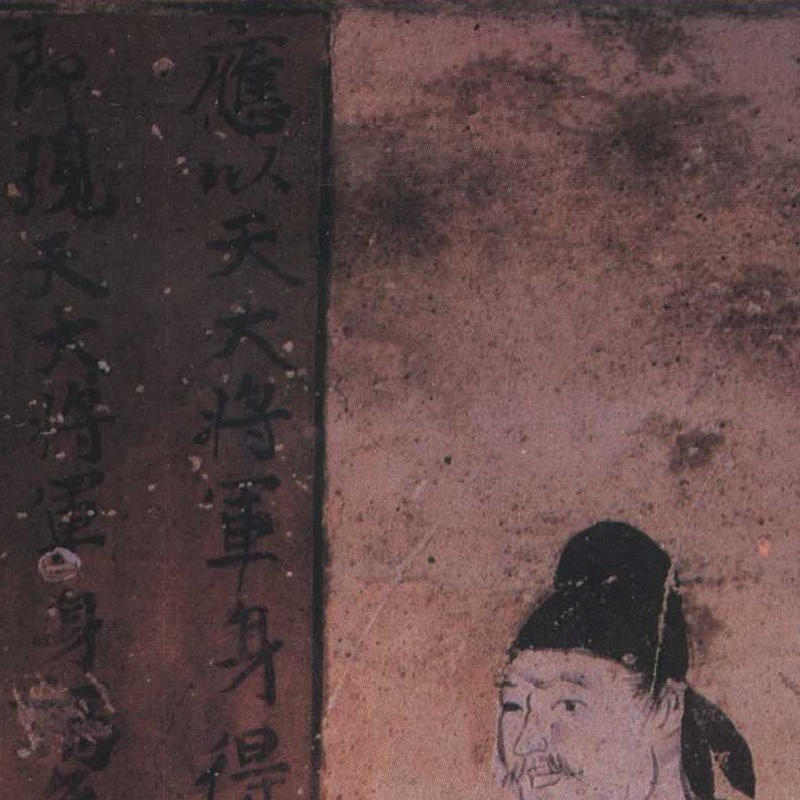 應以天大將軍身得
即現天大將軍身